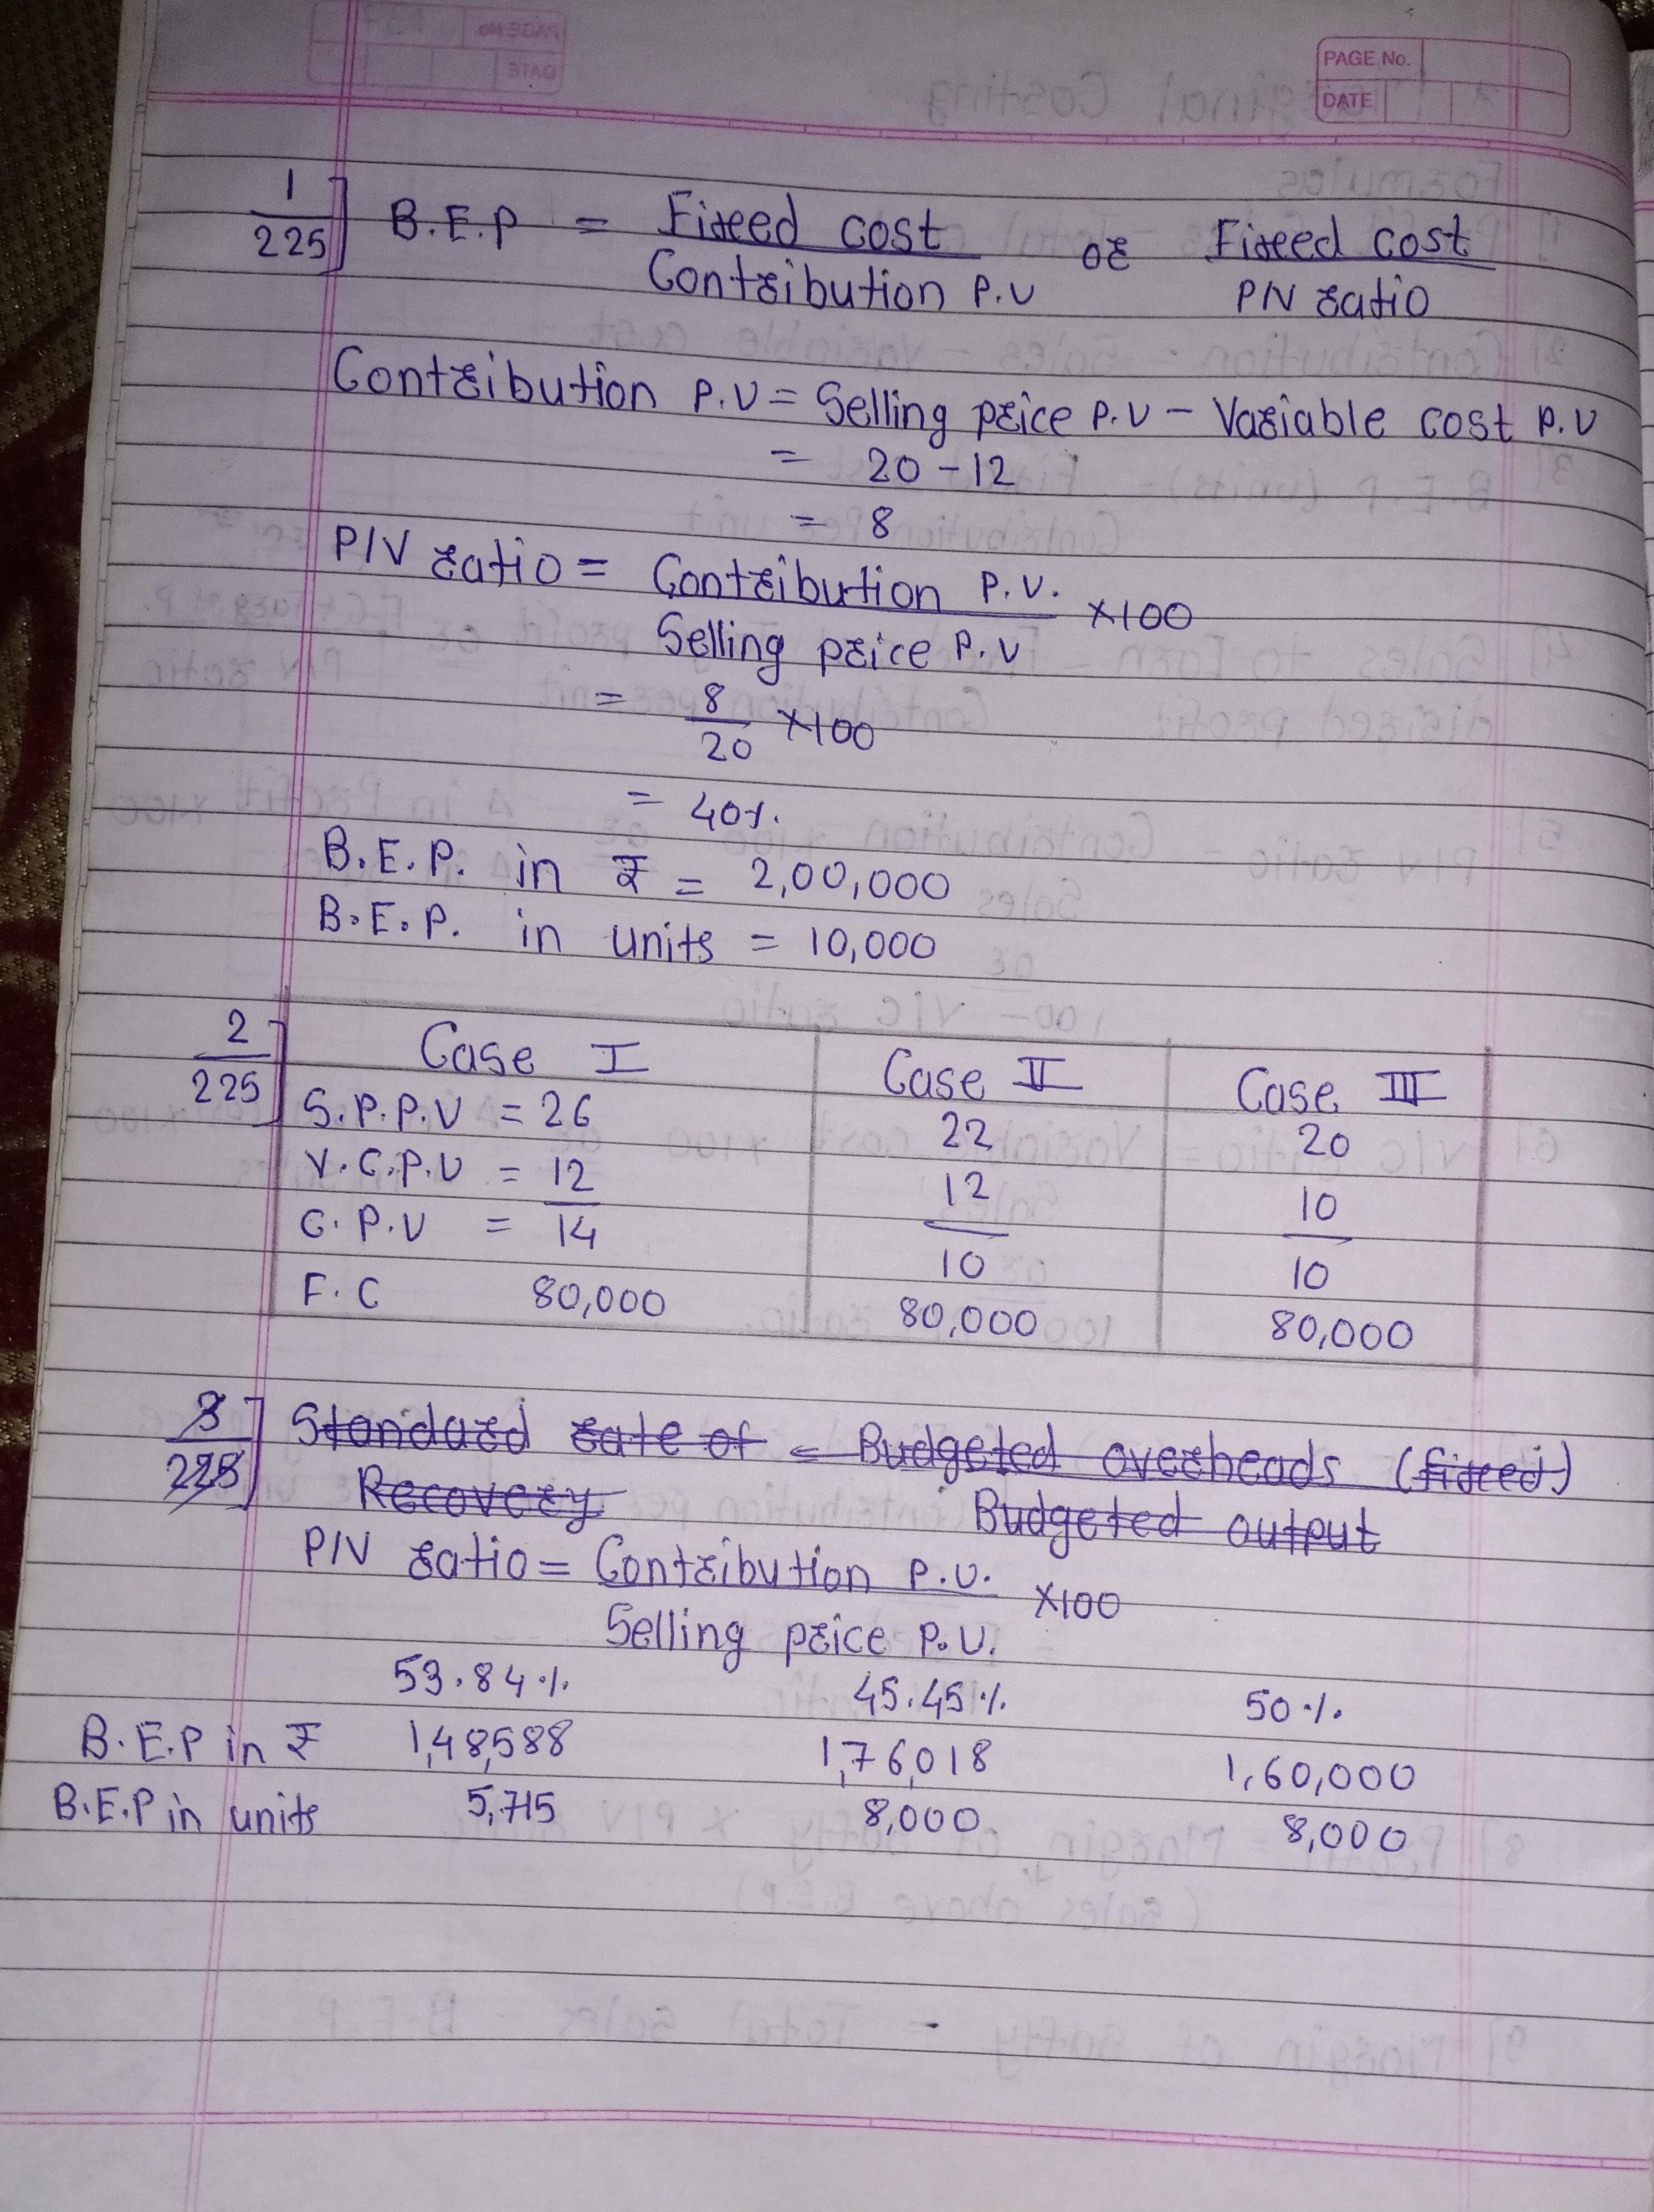 PAGE No.
DATE
1/225] B.E.P = Fixed cost / Contribution P.U or Fixed cost / P/V ratio
Contribution P.U = Selling price P.U - Variable cost P.U
= 20 - 12
= 8
P/V ratio = Contribution P.U. / Selling price P.U ×100
= 8/20 ×100
= 40%
B.E.P. in ₹ = 2,00,000
B.E.P. in units = 10,000
2/225] Case I Case II Case III
S.P.P.U = 26 22 20
V.C.P.U = 12 12 10
C.P.U = 14 10 10
F.C 80,000 80,000 80,000
3/225] Standard rate of Recovery = Budgeted overheads (fixed) / Budgeted output
P/V ratio = Contribution P.U. / Selling price P.U. ×100
53.84% 45.45% 50%
B.E.P in ₹ 1,48,588 1,76,018 1,60,000
B.E.P in units 5,715 8,000 8,000